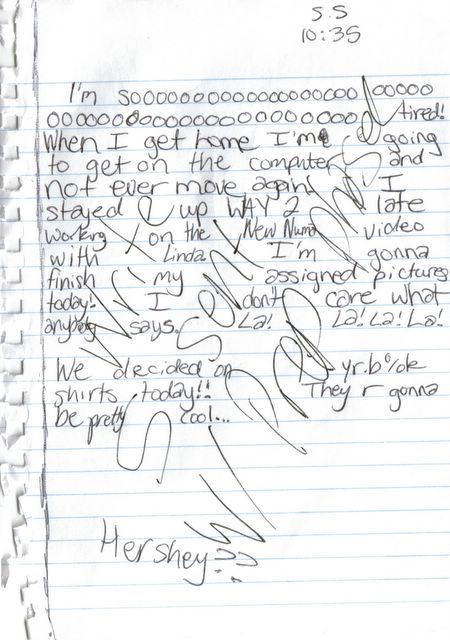 S.S
10:35
I'm sooooooooooooooooooooooo
oooooooooooooooooooooooo tired!
When I get home I'm going
to get on the computer and
not ever move again! I
stayed up WAY 2 late
working on the New Numa video
with Linda. I'm gonna
finish my assigned pictures
today! I dont care what
says. La! La! La! La!
We decided on yr.b%k
shirts today!! They r gonna
be pretty cool...
Hershey